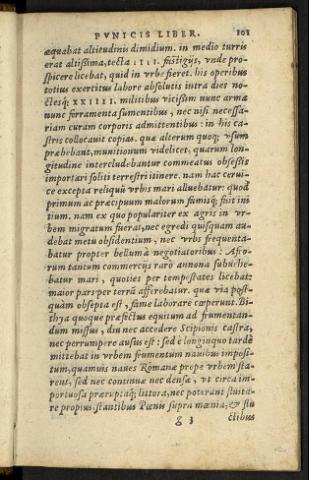 PVNICIS LIBER. 101
æquabat altitudinis dimidium. in medio turris
erat altißima, tecta IIII. fastigijs, vnde pro-
spicere licebat, quid in vrbe fieret. his operibus
totius exercitus labore absolutis intra dies no-
ctesq; XXIIII. militibus vicißim nunc arma
nunc ferramenta sumentibus, nec nisi necessa-
riam curam corporis admittentibus: in his ca-
stris collocauit copias. quæ alterum quoq; vsum
præbebant, munitionum videlicet, quarum lon-
gitudine intercludebantur commeatus obseßis
importari soliti terrestri itinere. nam hac cerui-
ce excepta reliquũ vrbis mari alluebatur: quod
primum ac præcipuum malorum fumisq; fuit ini
tium. nam ex quo populariter ex agris in vr-
bem migratum fuerat, nec egredi quisquam au-
debat metu obsidentium, nec vrbs frequenta-
batur propter bellum à negotiatoribus: Afro-
rum tantum commercijs rarò annona subueche-
batur mari, quoties per tempestates licebat:
maior pars per terrã afferebatur. quæ via post-
quàm obsepta est, fame laborare cœperunt. Bi-
thya quoque præfectus equitum ad frumentan-
dum missus, diu nec accedere Scipionis castra,
nec perrumpere ausus est: sed è longinquo tardè
mittebat in vrbem frumentum nauibus imposi-
tum, quamuis naues Romanæ prope vrbem sta-
rent, sed nec continuæ nec densæ, vt circa im-
portuosa præruptaq; littora, nec poterant fluita-
re propius. stantibus Pœnis supra mœnia, & flu
g 3 ctibus